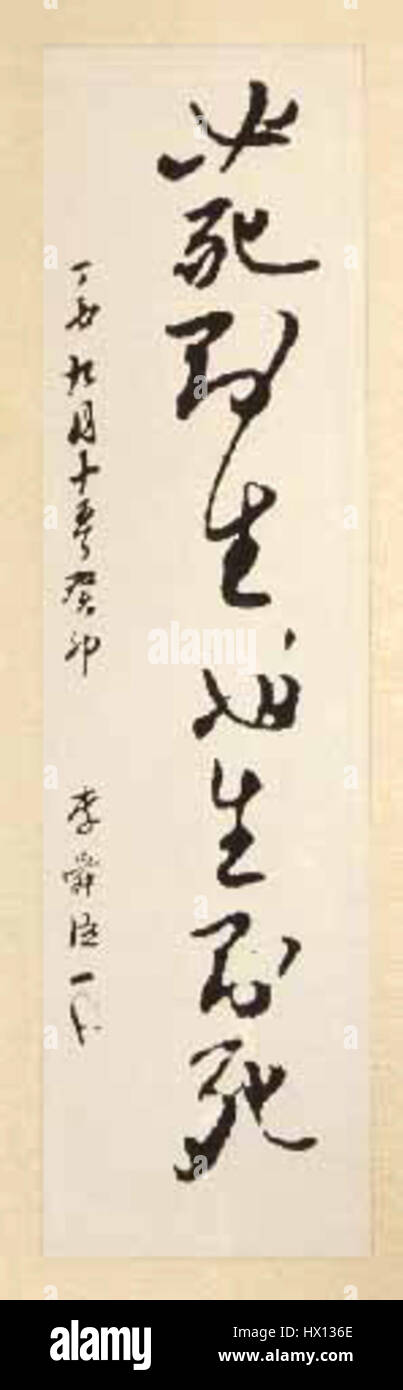 必死則生必生則死
丁酉九月十五日癸卯 李舜臣一心
alamy
alamy
Image ID: HX136E
www.alamy.com